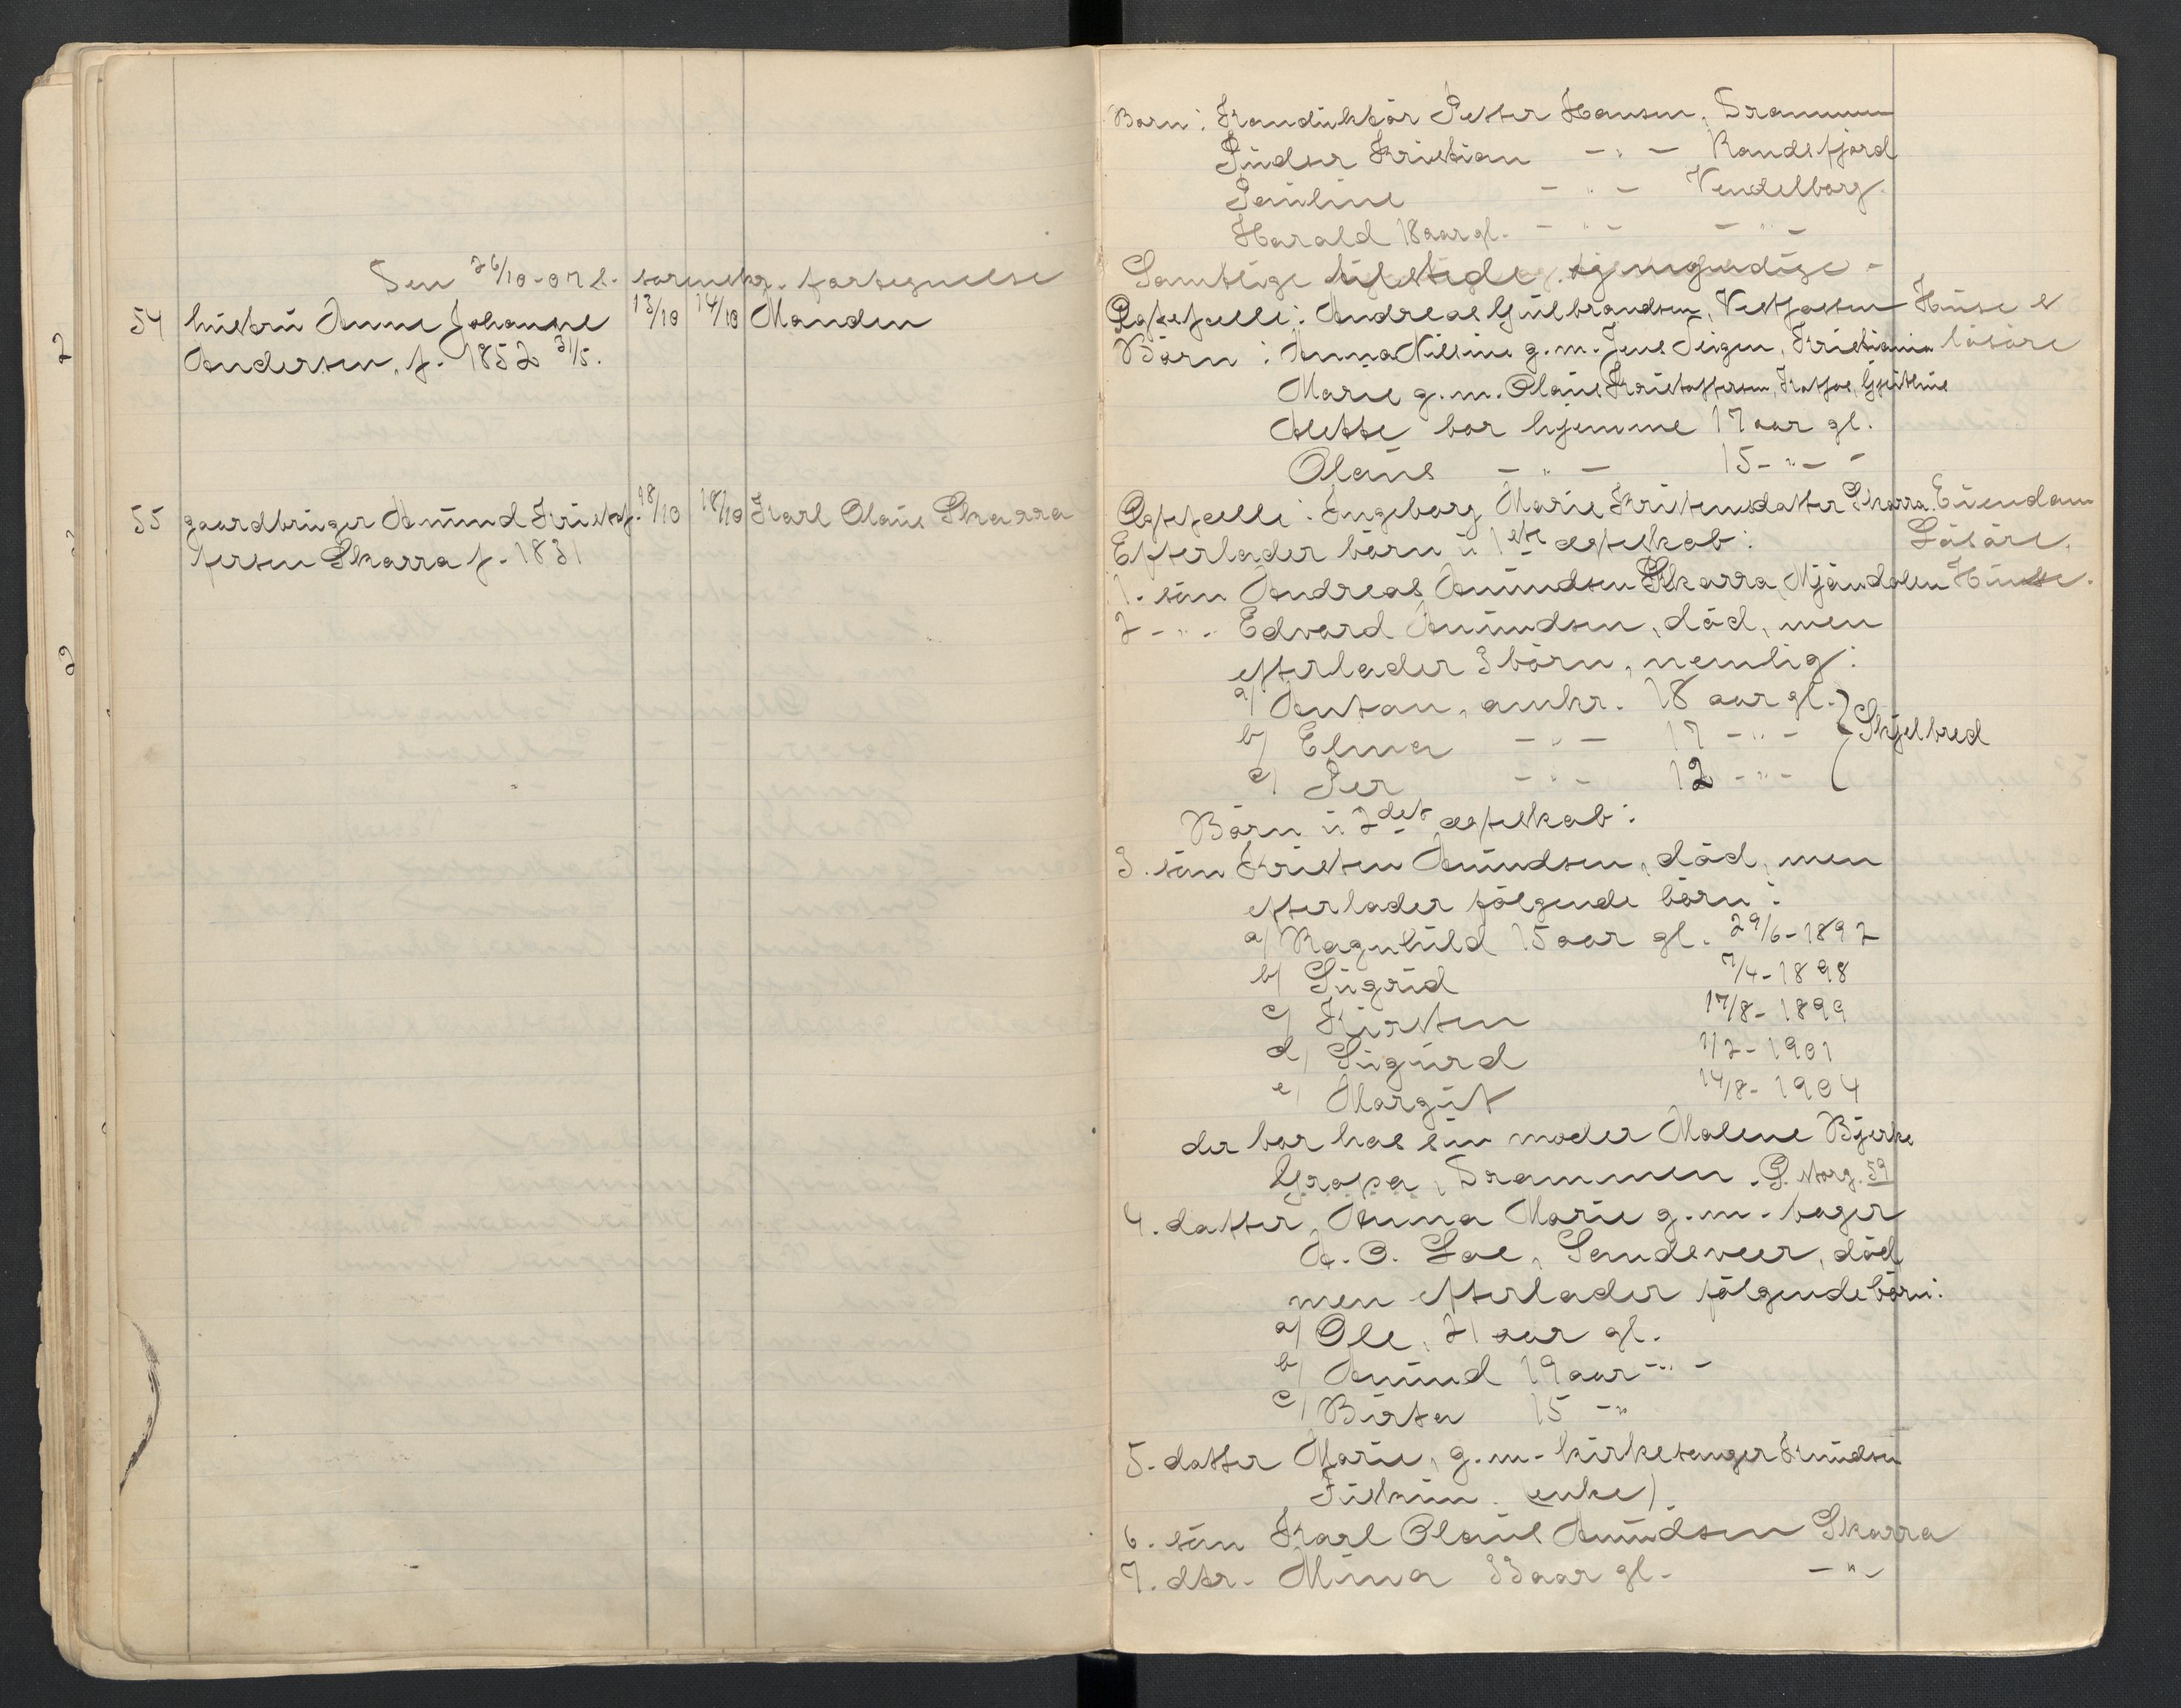 Den 26/10-07 s. sorenskr. fortegnelse
54 hustru Anne Johanne 13/10 14/10 Manden
Andersen, f. 1852 31/5.
55 gaardbruger Amund Kristof- 18/10 18/10 Karl Olaus Skarra
fersen Skarra f. 1831
Børn: Konduktør Petter Hansen, Drammen
Pudser Kristian -"- Randsfjord
Pauline -"- Vendelborg.
Harald 18 aar gl. -"- -"-
Samtlige
Ægtefælle: Andreas Gulbrandsen, Vestfossen Huse &
Børn: Anna Nilsine g.m. Jens Teigen, Kristiania løsøre
Marie g.m. Olaus Kristoffersen,
Alette bor hjemme 17 aar gl.
Olaus -"- 15 -"-
Ægtefælle: Ingeborg Marie Kristensdatter Skarra. Eiendom
Efterlader børn i 1ste ægteskab: Løsøre,
1. søn Andreas Amundsen Skarra, Mjøndalen Huse.
2 -"- Edvard Amundsen, død, men
efterlader 3 børn, nemlig:
a/ Anton, omkr. 18 aar gl. } Skjelbred
b/ Elma -"- 17 -"-
c/ Per -"- 12 -"-
Børn i 2det ægteskab:
3. søn Kristen Amundsen, død, men
efterlader følgende børn:
a/ Ragnhild 15 aar gl. 29/6-1892
b/ Sigrid 7/4-1898
c/ Kirsten 17/8-1899
d/ Sigurd 1/2-1901
e/ Margit 14/8-1904
der bor hos sin moder Malene Bjerke
Drammen. G. Storg. 59
4. datter, Anna Marie g.m. bager
A. O. Loe, Sandsvær, død
men efterlader følgende børn:
a/ Ole, 21 aar gl.
b/ Amund 19 aar -"-
c/ Birta 15 -"
5. datter Marie, g.m. kirkesanger Knudsen
Fiskum. (enke).
6. søn Karl Olaus Amundsen Skarra
7. dtr. Mina 33 aar gl. -"-